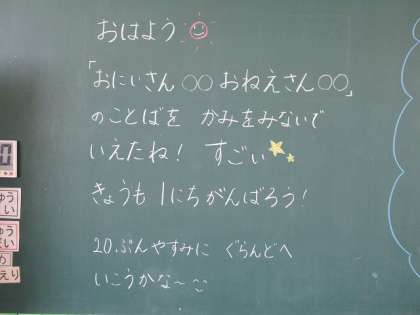 おはよう
「おにいさん ○○ おねえさん○○」
のことばを かみをみないで
いえたね! すごい
きょうも 1にちがんばろう!
20ぷんやすみに ぐらんどへ
いこうかな〜